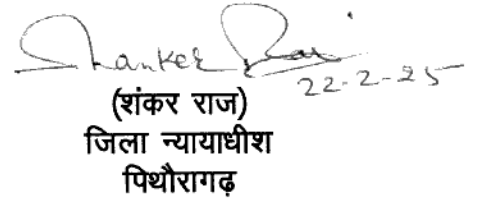 Shanker Raj
22-2-25
(शंकर राज)
जिला न्यायाधीश
पिथौरागढ़